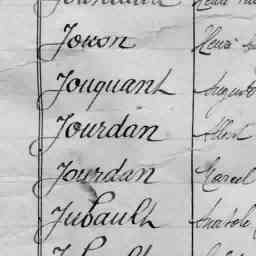 Joron Henri
Jouquant August
Jourdan Albert
Jourdan Marcel
Jubault Anatole